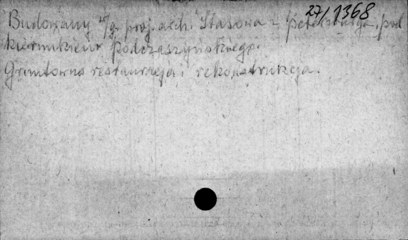 27/1368
Budowany w/g proj. arch. Stasowa z Petersburga, pod
kierunkiem Podczaszyńskiego.
Gruntowna restauracja i rekonstrukcja.